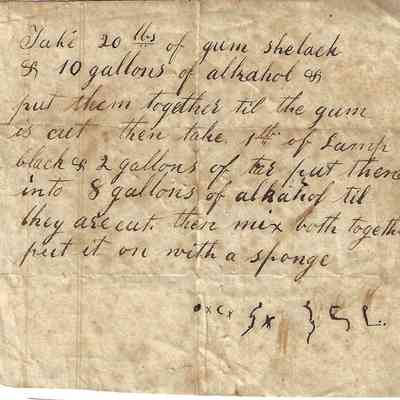 Take 20 lbs of gum shelack
& 10 gallons of alkahol &
put them together til the gum
is cut then take 1 lb of Lamp
black & 2 gallons of tar put them
into 8 gallons of alkahol til
they are cut then mix both togeth
put it on with a sponge